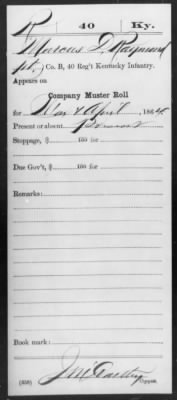 R 40 Ky.
Marcus D. Raymond
Pt., Co. B, 40 Reg't Kentucky Infantry.
Appears on
Company Muster Roll
for Mar & April, 1864.
Present or absent Present
Stoppage, $ 100 for
Due Gov't, $ 100 for
Remarks:
Book mark:
(358) Copyist.